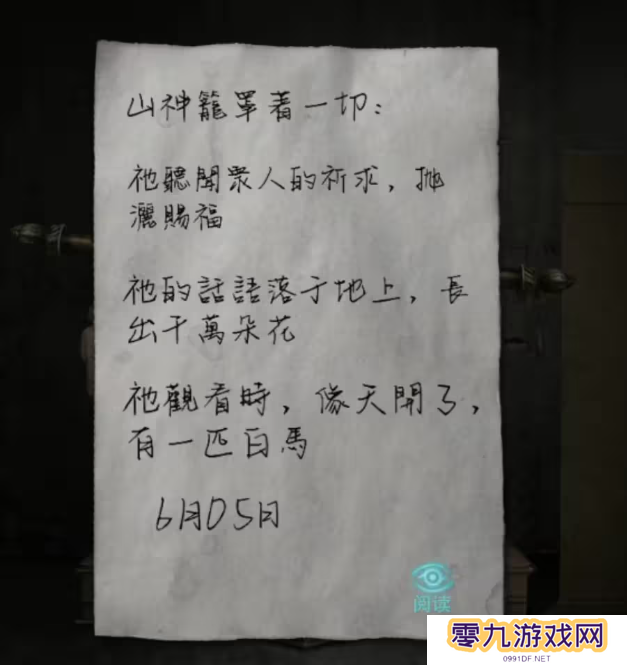 山神籠罩着一切：
祂聽聞眾人的祈求，抛
灑賜福
祂的話語落于地上，長
出千萬朵花
祂觀看時，像天開了，
有一匹白馬
6月05日
阅读
零九游戏网
0991DF.NET